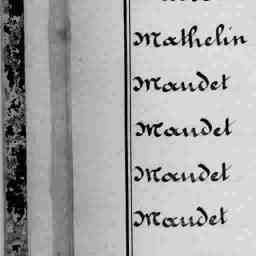 Mathelin
Maudet
Maudet
Maudet
Maudet